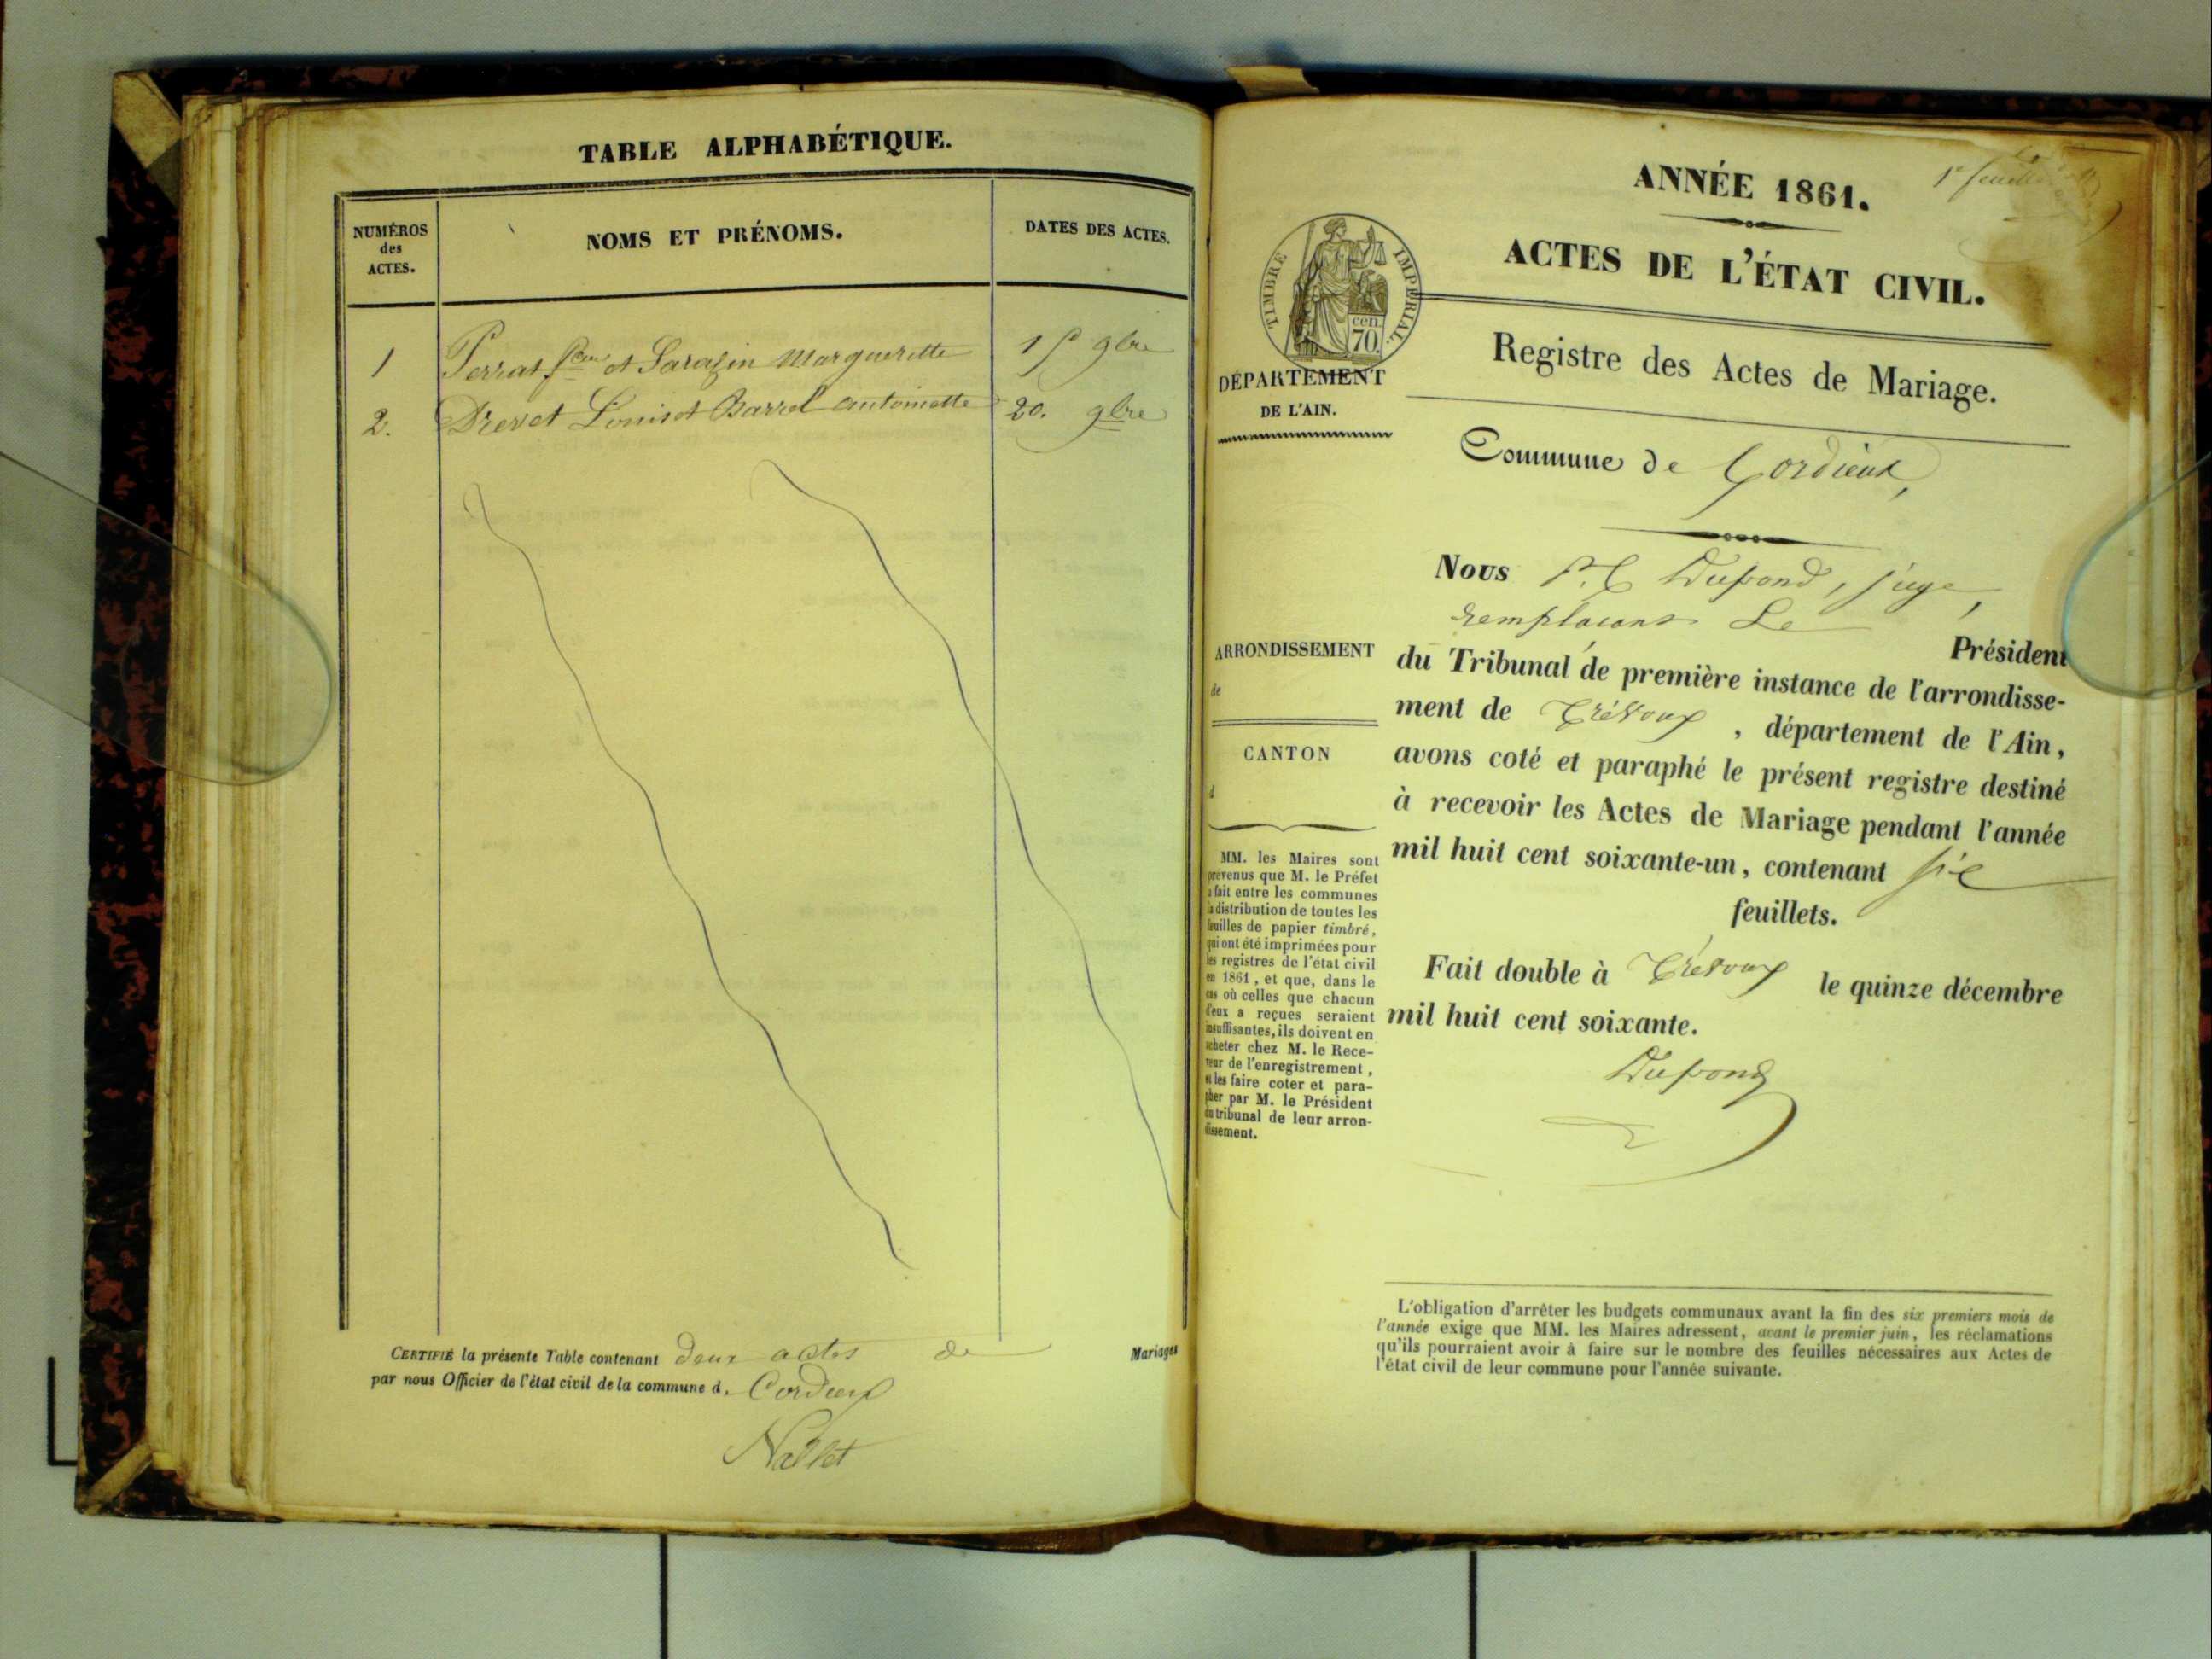 TABLE ALPHABÉTIQUE.
NUMÉROS
des
ACTES.
NOMS ET PRÉNOMS.
DATES DES ACTES.
1 Perrat et Sarazin Margueritte 9bre
2. Drevet Louis et Barrel antoinette 20. 9bre
CERTIFIÉ la présente Table contenant deux actes de Mariages
par nous Officier de l'état civil de la commune d. Cordieux
Nallet
1e feuillet
ANNÉE 1861.
ACTES DE L'ÉTAT CIVIL.
TIMBRE IMPÉRIAL.
cen.
70.
DÉPARTEMENT
DE L'AIN.
Registre des Actes de Mariage.
Commune de Cordieux,
Nous Dupond, juge,
remplacant Le Président
ARRONDISSEMENT
de
CANTON
d
du Tribunal de première instance de l'arrondisse-
ment de Trévoux, département de l'Ain,
avons coté et paraphé le présent registre destiné
à recevoir les Actes de Mariage pendant l'année
mil huit cent soixante-un, contenant six
feuillets.
Fait double à Trévoux le quinze décembre
mil huit cent soixante.
Dupond
MM. les Maires sont
prévenus que M. le Préfet
a fait entre les communes
la distribution de toutes les
feuilles de papier timbré,
qui ont été imprimées pour
les registres de l'état civil
en 1861, et que, dans le
cas où celles que chacun
d'eux a reçues seraient
insuffisantes, ils doivent en
acheter chez M. le Rece-
veur de l'enregistrement,
et les faire coter et para-
pher par M. le Président
du tribunal de leur arron-
dissement.
L'obligation d'arrêter les budgets communaux avant la fin des six premiers mois de
l'année exige que MM. les Maires adressent, avant le premier juin, les réclamations
qu'ils pourraient avoir à faire sur le nombre des feuilles nécessaires aux Actes de
l'état civil de leur commune pour l'année suivante.